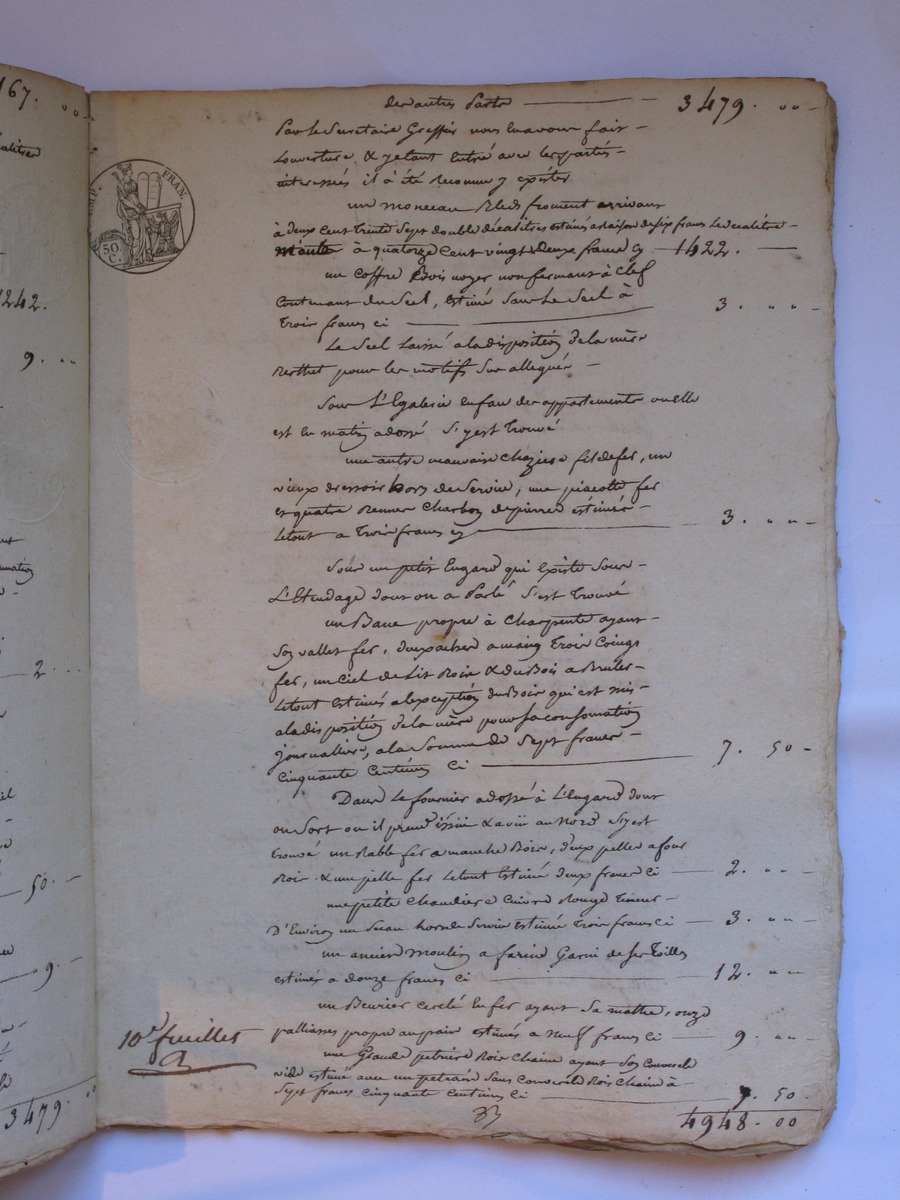 167. 00
1242.
9. ..
2 ...
50. -
9. -
3479. 00
IMP. FRAN.
50 C.
des autres Parts — 3479. 00 -
Par le Secretaire Greffier nous en avons fait -
Louverture, & y etant Entré avec les partés -
interessées il à été Reconnu y exister
un monceau Bleds froment arrivant
à deux Cent trente Sept double décalitres estimés a raison de six francs Le decalitre
à quatorze Cent vingt Deux francs cy — 1422. —
un Coffre Bois noyer non fermant à Clef
Contenant du Sel, Estimé Sans Le Seel à
Trois francs ci — 3. ..
Le Seel Laissé a la disposition de la mère
pour les motifs Sus allegués -
Sous L'Egalerie En face des appartements ou elle
est En matiz adossé S'y est Trouvé
une autre mauvaise Chaziere fil de fer, un
vieux dressoir hors de Service, une piacotte fer
et quatre Bennes Charbon de pierre éstimés -
Letout a Trois francs cy — 3. ..
Sous un petit Engard qui Existe Sous -
L'Etendage dont on a Parlé S'est Trouvé
un Banc propre à Charpente ayant -
Son vallet fer, deux aches a main Trois Coings
fer, un Ciel de Lit Bois & du Bois a Bruler -
Letout Estimés a lexception du Bois qui est mis -
a la disposition de la mère pour sa consomation
journalliere, a la Somme de Sept francs -
Cinquante Centimes Ci — 7. 50 -
Dans Le fournier adossé à L'Engard dont
on Sort ou il prend issüe & avüe au Nord S'y est
trouvé un Rable fer a manche Bois, deux pelles a four
Bois & une pelle fer Letout Estimé deux francs Ci — 2. ..
une petite Chaudiere Cuivre Rouge Teneur -
D'Environ un Seau hors de Service Estimé Trois francs Ci — 3. ..
un ancien Moulin a farine Garni de ses Toilles
estimés a douze francs ci — 12. ..
un Beurier Cerclé En fer ayant Sa mathe, onze
palliasses propre au pain estimés a neuf francs Ci — 9. ..
une Grande petriere Bois Chaine ayant Son Couvercle
vide estimé avec un petrain Sans Couvercle Bois Chaine à
Sept francs Cinquante Centimes Ci — 7. 50 -
4948. 00
10e feuillet